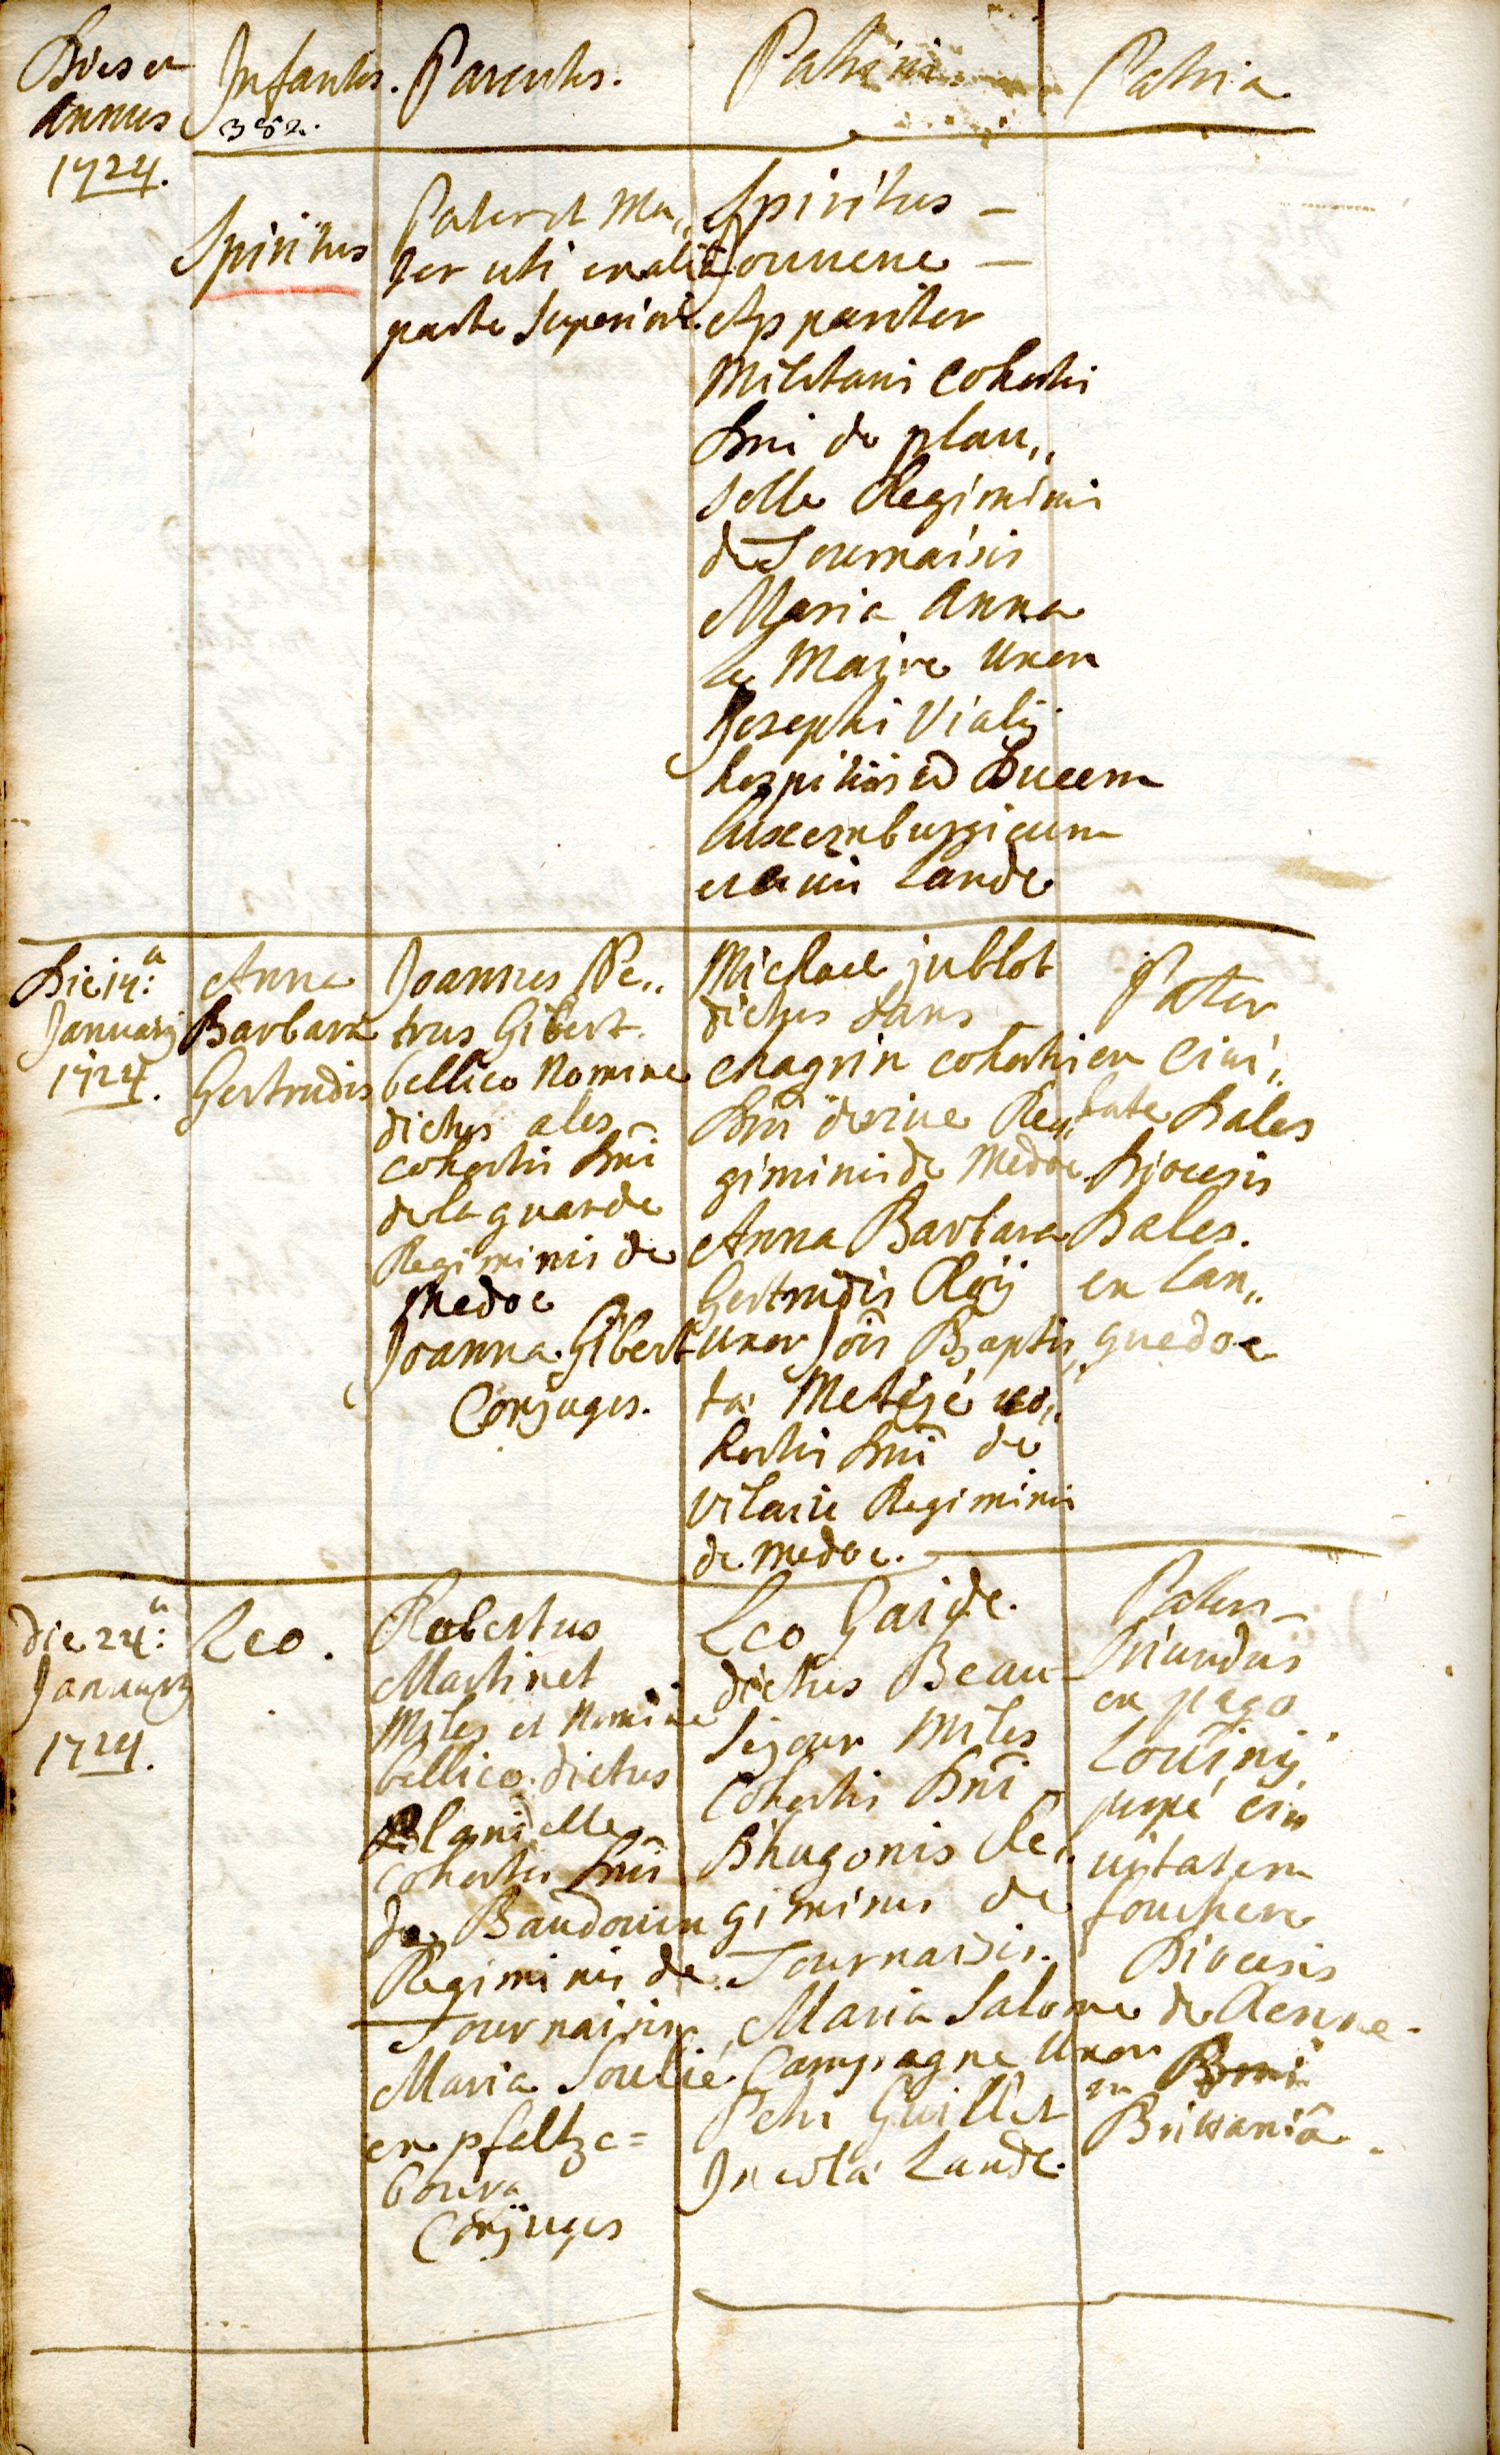 Dies et
Annus
1724.
Infantes.
382.
Parentes.
Patrini
Patria
Spiritus
Pater et Ma,,
ter uti ex alia
parte superiore.
Spiritus —
Jouuene —
Appariter
Militaris Cohortis
Dni de plan,,
selle Regiminis
de Tournaisis
Maria Anna
le Maire Uxor
Josephi Vialis
hospitiis ad Ducem
luxemburgicum
Landæ
Die 14:a
Januarij
1724.
Anna
Barbara
Gertrudis
Joannes Pe,,
trus Gibert
bellico Nomine
dictus ales
cohortis Dni
de la guarde
Regiminis de
Medoc
Joanna Gibert
Conjuges.
Michael jublot
dictus sans
chagrin cohortis
Dni derive Re,,
giminis de Medoc.
Anna Barbara
Gertrudis Roÿ
Uxor Jois Baptis,,
ta Metéjé co,,
hortis Dni de
vilarie Regiminis
de medoc.
Pater
ex Civi,,
tate Dales
Diocesis
Dales.
en Lan,,
guedoc
die 24:a
Januarij
1724.
Leo.
Robertus
Martinet
Miles et Nomine
bellico dictus
Blondelle
cohortis Dni
de Baudouin
Regiminis de
Tournaisis
Maria Soulié
ex pfaltze=
bourg
Conjuges
Leo Gaide.
dictus Beau-
sejour Miles
Cohortis Dni
Dhugonis Re,,
giminis de
Tournaisis.
Maria Salome
Campagne Uxor
Petri Guillet
Incola Landæ.
Pater
oriundus
ex pago
Louinij
prope ci,,
uitatem
fouchere
Diocesis
de Renne
in
Britaniâ.